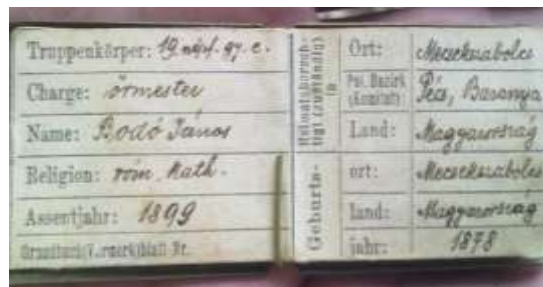 Truppenkörper: 19 népf. gy. e.
Charge: őrmester
Name: Bodó János
Religion: róm. kath.
Assentjahr: 1899
Grundbuch(Vormerk)blatt Nr.
Heimatsberechtigt (zuständig) in
Ort: Mecsekszabolcs
Pol. Bezirk (Komitat): Pécs, Baranya
Land: Magyarország
Geburts-
ort: Mecsekszabolcs
land: Magyarország
jahr: 1878